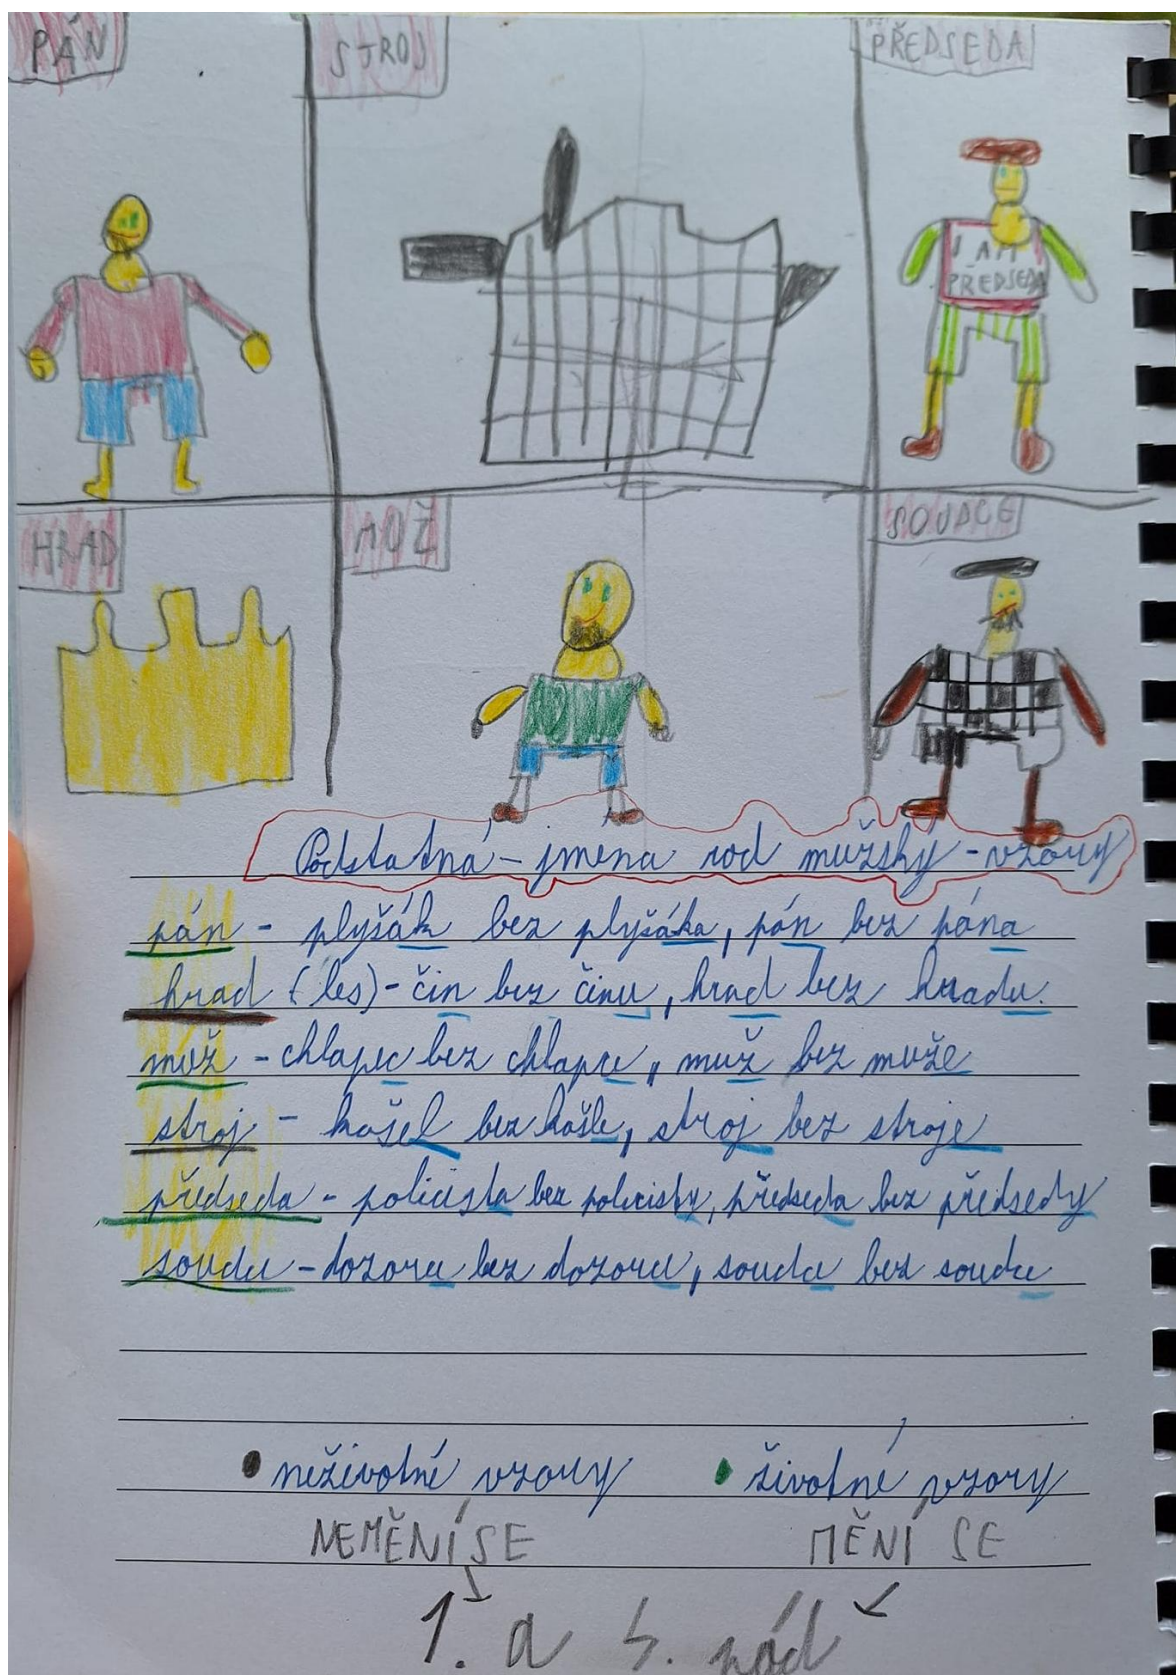 PÁN
STROJ
PŘEDSEDA
I AM
PŘEDSEDA
HRAD
MUŽ
SOUDCE
Podstatná - jména rod mužský - vzory
pán - plyšák bez plyšáka, pán bez pána
hrad (les) - čin bez činu, hrad bez hradu.
muž - chlapec bez chlapce, muž bez muže
stroj - košel bez košle, stroj bez stroje
předseda - policista bez policisty, předseda bez předsedy
soudce - dozorce bez dozorce, soudce bez soudce
neživotné vzory životné vzory
NEMĚNÍ SE MĚNÍ SE
1. a 4. pád